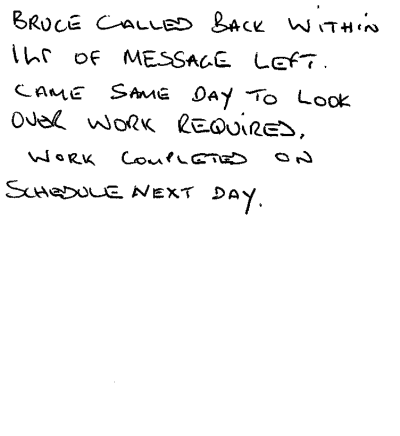 BRUCE CALLED BACK WITHIN
1hr OF MESSAGE LEFT.
CAME SAME DAY TO LOOK
OVER WORK REQUIRED.
WORK COMPLETED ON
SCHEDULE NEXT DAY.